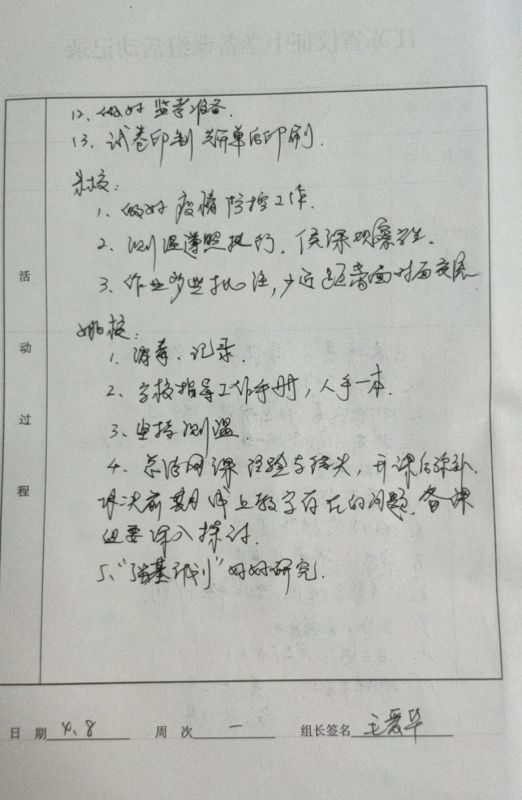 12、做好监考准备.
13、试卷印制 答题单的印刷.
校:
1、做好疫情防控工作.
2、测温遵照执行, 侯课观察学生.
3、作业多些批注, 少近距离面对面交流
姚校:
1、消毒、记录.
2、学校指导工作手册, 人手一本.
3、坚持测温
4、总结网课经验与得失, 开课后弥补.
解决前期线上教学存在的问题. 备课
组要深入探讨.
5、"强基计划"好好研究.
活
动
过
程
日 期 4.8 周 次 一 组长签名 王爱华